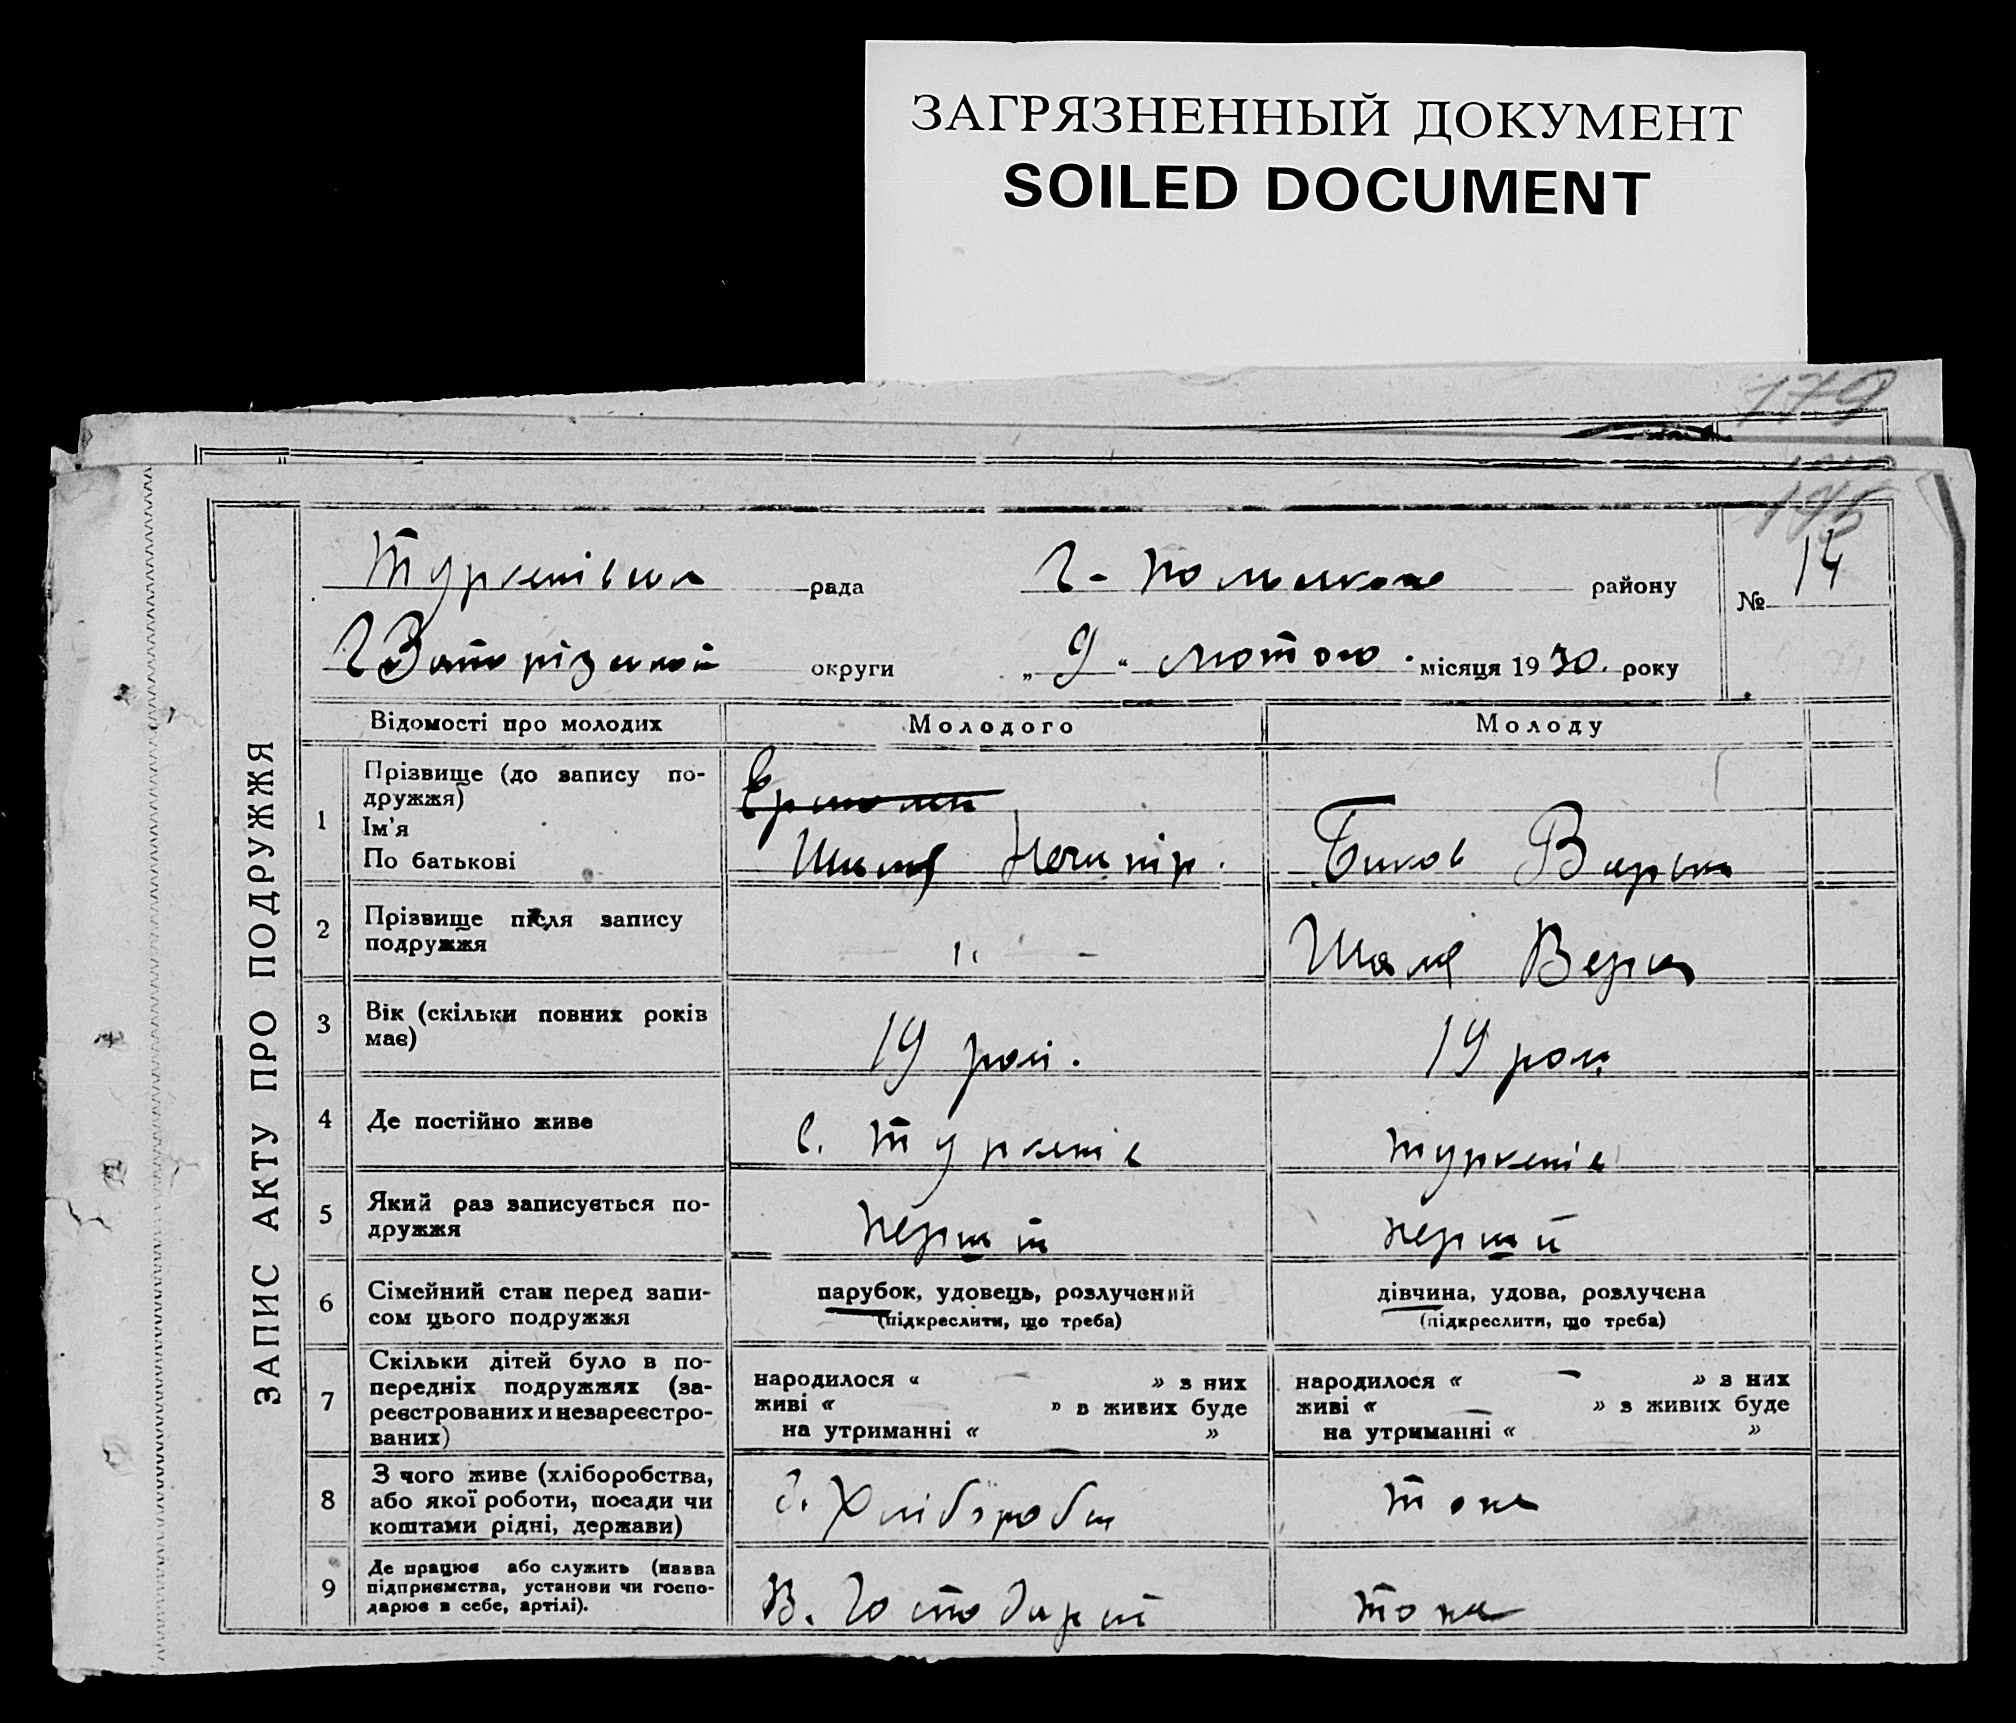 ЗАГРЯЗНЕННЫЙ ДОКУМЕНТ
SOILED DOCUMENT
179
14
рада
району
№
округи
„ 9 " лютого місяця 1930. року
ЗАПИС АКТУ ПРО ПОДРУЖЖЯ
Відомості про молодих
Молодого
Молоду
1
Прізвище (до запису по-
дружжя)
Ім'я
По батькові
Нечипір.
Биков
2
Прізвище після запису
подружжя
Вера
3
Вік (скільки повних років
має)
19 рокі.
19 рокі
4
Де постійно живе
с. Туркенів
Туркенів
5
Який раз записується по-
дружжя
перший
перший
6
Сімейний стан перед запи-
сом цього подружжя
парубок, удовець, розлучений
(підкреслити, що треба)
дівчина, удова, розлучена
(підкреслити, що треба)
7
Скільки дітей було в по-
передніх подружжях (за-
реєстрованих и незареєстро-
ваних)
народилося « » з них
живі « » в живих буде
на утриманні « »
народилося « — » з них
живі « — » з живих буде
на утриманні « »
8
З чого живе (хліборобства,
або якої роботи, посади чи
коштами рідні, держави)
9
Де працює або служить (назва
підприємства, установи чи госпо-
дарює в себе, артілі).
В.